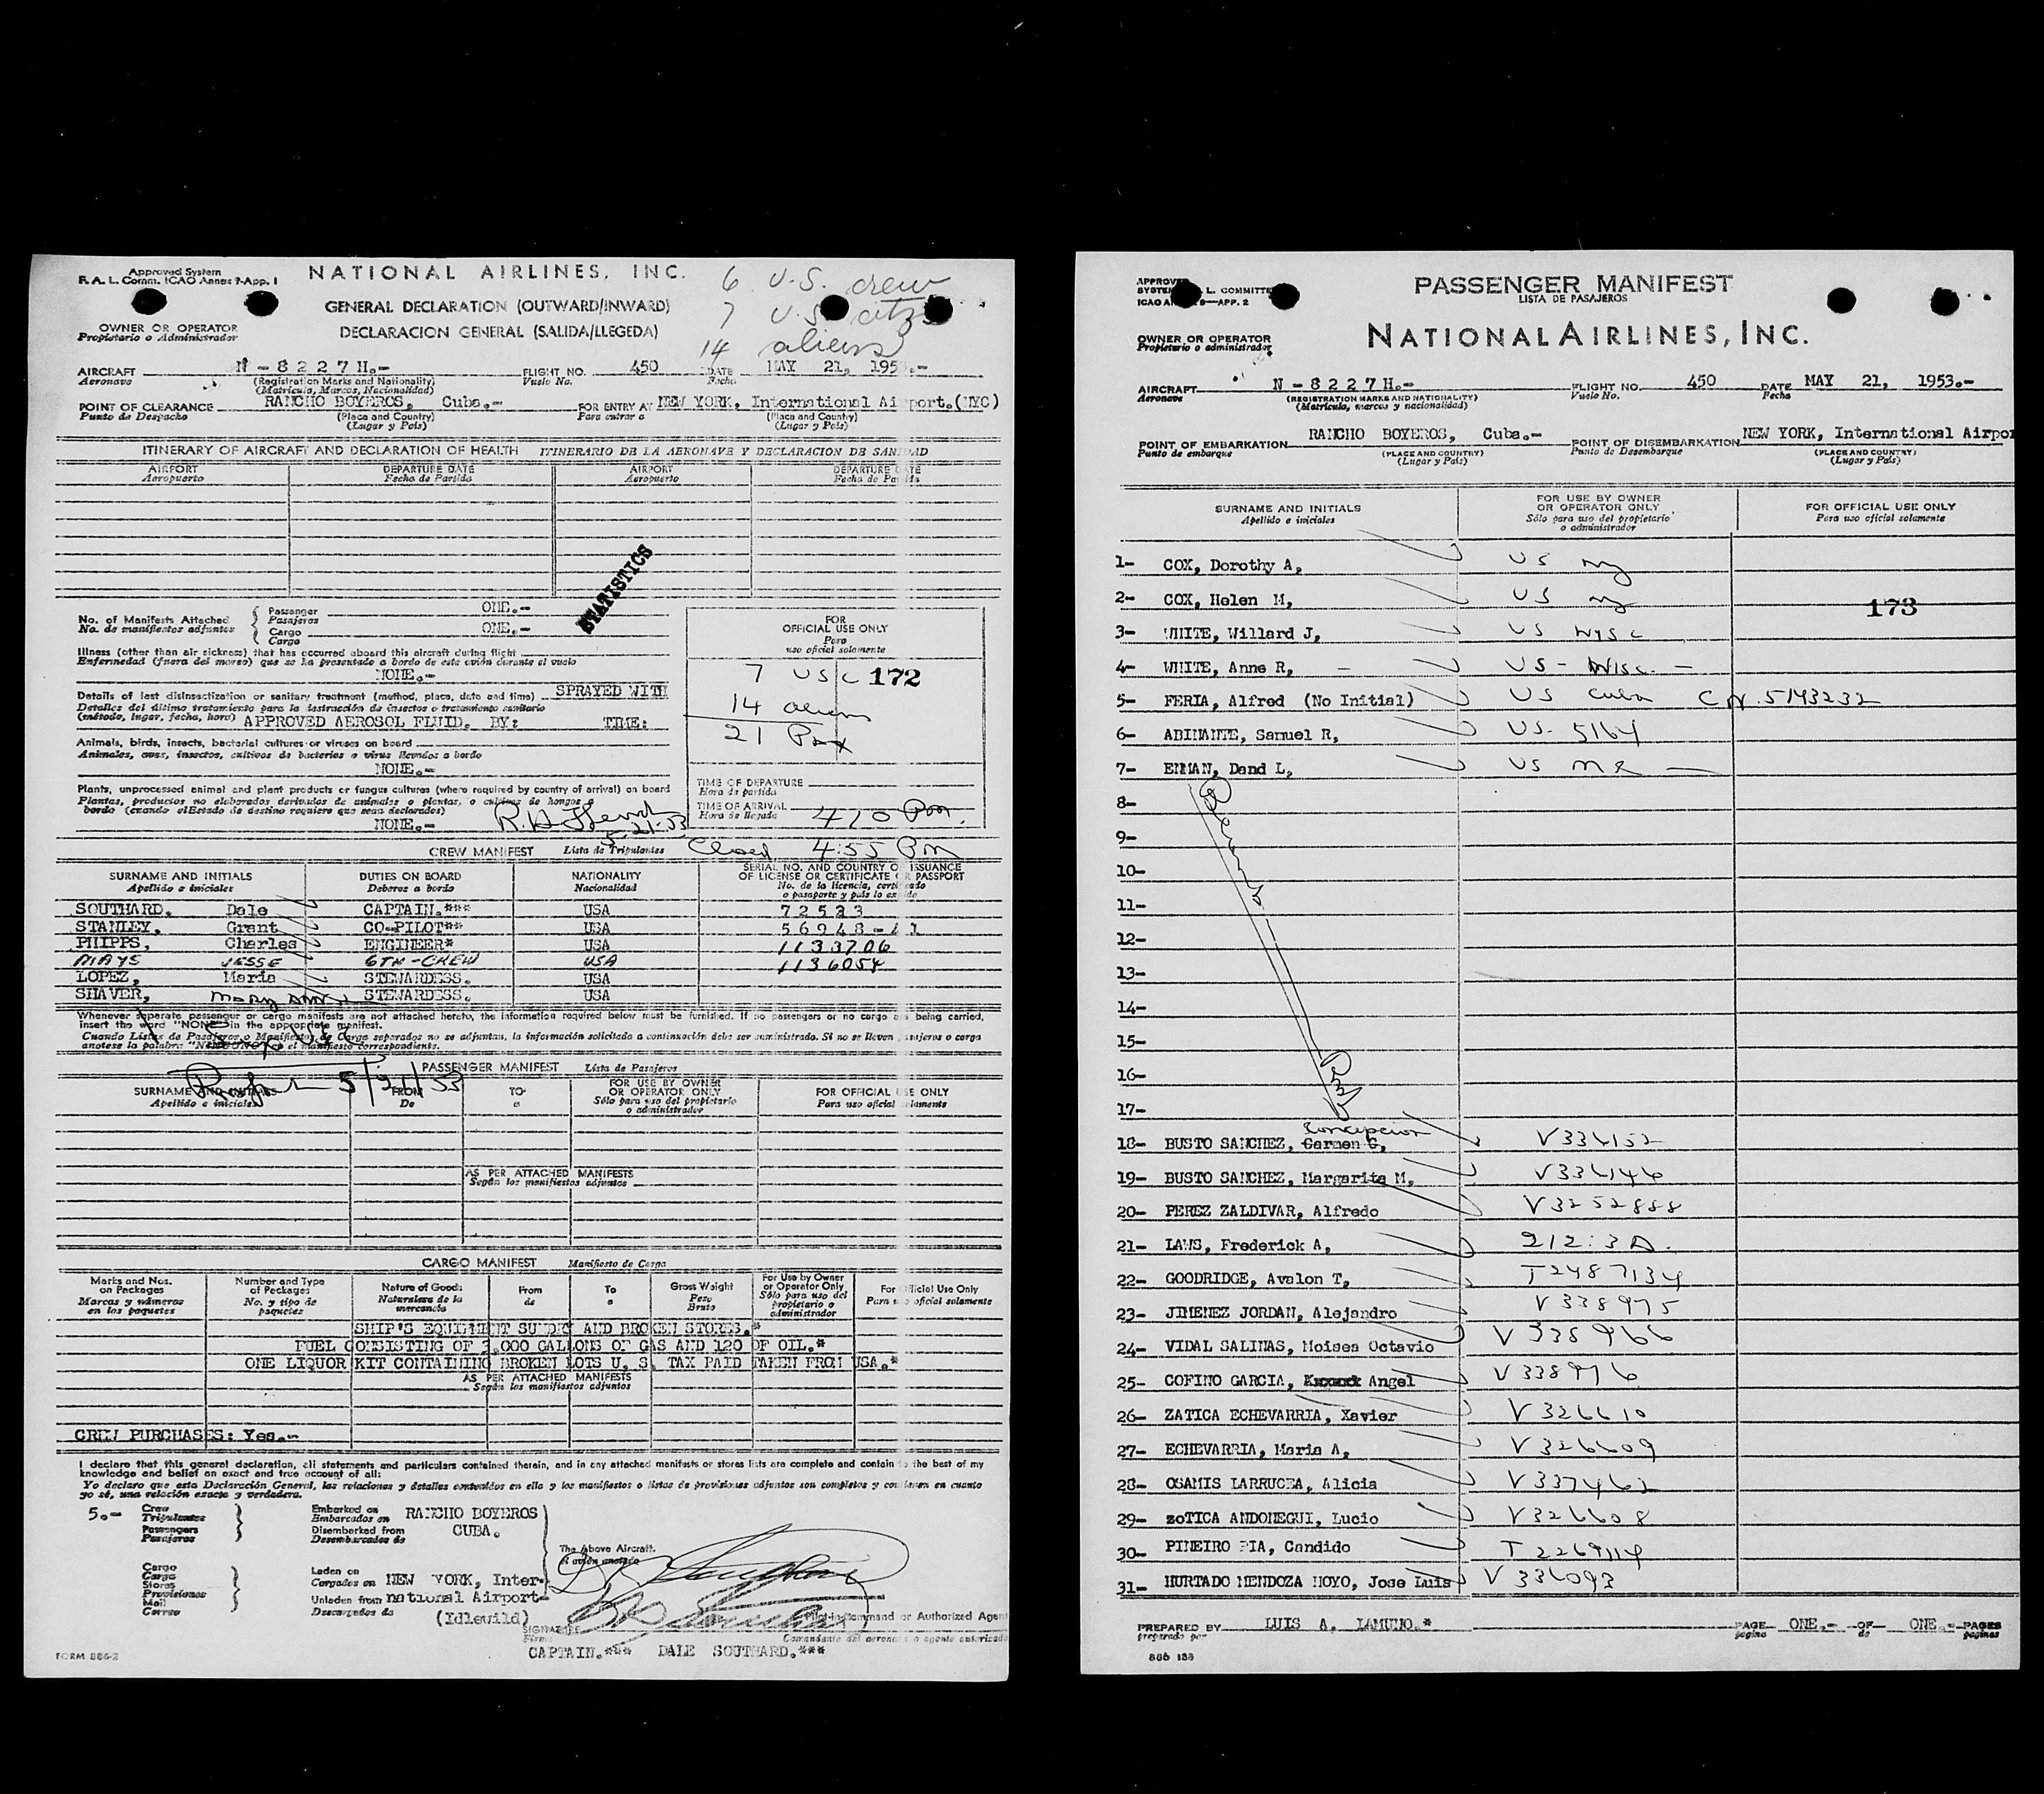 Approved System
F. A. L. Comm. ICAO Annex 9-App. 1
NATIONAL AIRLINES, INC.
6 U.S. crew
GENERAL DECLARATION (OUTWARD/INWARD)
7 U.S. citz
OWNER OR OPERATOR
Propietario o Administrador
DECLARACION GENERAL (SALIDA/LLEGEDA)
14 aliens
AIRCRAFT N - 8 2 2 7 H.- FLIGHT NO. 450 DATE MAY 21, 195 .-
Aeronave (Registration Marks and Nationality) Vuelo No. Fecha
(Matricula, Marcas, Nacionalidad)
POINT OF CLEARANCE RANCHO BOYEROS, Cuba.- FOR ENTRY AT NEW YORK, International Airport.(NYC)
Punto de Despacho (Place and Country) Para entrar a (Place and Country)
(Lugar y Pais) (Lugar y Pais)
ITINERARY OF AIRCRAFT AND DECLARATION OF HEALTH ITINERARIO DE LA AERONAVE Y DECLARACION DE SANIDAD
AIRPORT DEPARTURE DATE AIRPORT DEPARTURE DATE
Aeropuerto Fecha de Partida Aeropuerto Fecha de Partida
STATISTICS
No. of Manifests Attached Passenger ONE.-
No. de manifiestos adjuntos Pasajeros
Cargo ONE.-
Cargo
FOR
OFFICIAL USE ONLY
Para
uso oficial solamente
Illness (other than air sickness) that has occurred aboard this aircraft during flight
Enfermedad (fuera del mareo) que se ha presentado a bordo de este avión durante el vuelo
NONE.-
7 USC 172
Details of last disinsectization or sanitary treatment (method, place, date and time) SPRAYED WITH
Detalles del último tratamiento para la destrucción de insectos o tratamiento sanitario
(método, lugar, fecha, hora) APPROVED AEROSOL FLUID. BY: TIME:
14 aliens
21 Pax
Animals, birds, insects, bacterial cultures or viruses on board
Animales, aves, insectos, cultivos de bacterias o virus llevados a bordo
NONE.-
Plants, unprocessed animal and plant products or fungus cultures (where required by country of arrival) on board
Plantas, productos no elaborados derivados de animales o plantas, o cultivos de hongos a
bordo (cuando el Estado de destino requiere que sean declarados)
NONE.-
5-21-53
TIME OF DEPARTURE
Hora de partida
TIME OF ARRIVAL 410 Pm.
Hora de llegada
CREW MANIFEST Lista de Tripulantes Closed 4:55 Pm
SURNAME AND INITIALS DUTIES ON BOARD NATIONALITY SERIAL NO. AND COUNTRY OF ISSUANCE
OF LICENSE OR CERTIFICATE OR PASSPORT
Apellido e iniciales Deberes a bordo Nacionalidad No. de la licencia, certificado
o pasaporte y pais lo expide
SOUTHARD, Dale CAPTAIN.*** USA 72523
STANLEY, Grant CO-PILOT** USA 56948-41
PHIPPS, Charles ENGINEER* USA 1133706
MAYS JESSE 6TH-CREW USA 1136054
LOPEZ, Maria STEWARDESS. USA
SHAVER, Mary STEWARDESS. USA
Whenever separate passenger or cargo manifests are not attached hereto, the information required below must be furnished. If no passengers or no cargo are being carried,
insert the word "NONE" in the appropriate manifest.
Cuando Listas de Pasajeros o Manifiestos de Carga separados no se adjuntan, la información solicitada a continuación debe ser suministrada. Si no se lleven pasajeros o carga
anotese la palabra: "NINGUNO" el manifiesto correspondiente.
PASSENGER MANIFEST Lista de Pasajeros
5/21/53
SURNAME AND INITIALS FROM TO FOR USE BY OWNER
OR OPERATOR ONLY FOR OFFICIAL USE ONLY
Apellido e iniciales De a Sólo para uso del propietario
o administrador Para uso oficial solamente
AS PER ATTACHED MANIFESTS
Según los manifiestos adjuntos
CARGO MANIFEST Manifiesto de Carga
Marks and Nos.
on Packages
Marcas y números
en los paquetes
Number and Type
of Packages
No. y tipo de
paquetes
Nature of Goods
Naturaleza de la
mercancia
From
de
To
a
Gross Weight
Peso
Bruto
For Use by Owner
or Operator Only
Sólo para uso del
propietario o
administrador
For Official Use Only
Para uso oficial solamente
SHIP'S EQUIPMENT SUNDRY AND BROKEN STORES.*
FUEL CONSISTING OF 3,000 GALLONS OF GAS AND 120 OF OIL.*
ONE LIQUOR KIT CONTAINING BROKEN LOTS U. S. TAX PAID TAKEN FROM USA.*
AS PER ATTACHED MANIFESTS
Según los manifiestos adjuntos
CREW PURCHASES: Yes.-
I declare that this general declaration, all statements and particulars contained therein, and in any attached manifests or stores lists are complete and contain to the best of my
knowledge and belief an exact and true account of all:
Yo declaro que esta Declaración General, las relaciones y detalles contenidos en ella y los manifiestos o listas de provisiones adjuntos son completos y contienen en cuanto
yo sé, una relación exacta y verdadera.
5.- Crew
Tripulantes
Passengers
Pasajeros
Embarked on RANCHO BOYEROS
Embarcados en
Disembarked from CUBA.
Desembarcados de
The Above Aircraft.
Cargo
Carga
Stores
Provisiones
Mail
Correo
Laden on NEW YORK, Inter-
Cargados en
Unladen from national Airport-
Descargados de (Idlewild)
SIGNATURE Pilot-in-Command or Authorized Agent
Firma Comandante del aeronave o agente autorizado
CAPTAIN.*** DALE SOUTHARD.***
FORM 886-2
APPROVED
SYSTEM L. COMMITTEE
ICAO AN 9—APP. 2
PASSENGER MANIFEST
LISTA DE PASAJEROS
OWNER OR OPERATOR
Propietario o administrador
NATIONAL AIRLINES, INC.
AIRCRAFT N - 8 2 2 7 H.- FLIGHT NO. 450 DATE MAY 21, 1953.-
Aeronave (REGISTRATION MARKS AND NATIONALITY) Vuelo No. Fecha
(Matricula, marcas y nacionalidad)
POINT OF EMBARKATION RANCHO BOYEROS, Cuba.- POINT OF DISEMBARKATION NEW YORK, International Airpor
Punto de embarque (PLACE AND COUNTRY) Punto de Desembarque (PLACE AND COUNTRY)
(Lugar y Pais) (Lugar y Pais)
SURNAME AND INITIALS
Apellido e iniciales
FOR USE BY OWNER
OR OPERATOR ONLY
Sólo para uso del propietario
o administrador
FOR OFFICIAL USE ONLY
Para uso oficial solamente
1- COX, Dorothy A, US ny
2- COX, Helen M, US ny
173
3- WHITE, Willard J, US Wisc
4- WHITE, Anne R, - US - Wisc. -
5- FERIA, Alfred (No Initial) US Cuba CN. 5143232
6- ABINANTE, Samuel R, US. 5164
7- ENMAN, Dand L, US
8-
9-
10-
11-
12-
13-
14-
15-
16-
17-
Concepcion
18- BUSTO SANCHEZ, Carmen G, V336152
19- BUSTO SANCHEZ, Margarita M, V336146
20- PEREZ ZALDIVAR, Alfredo V3252888
21- LAWS, Frederick A, 212:3A.
22- GOODRIDGE, Avalon T, T2487134
23- JIMENEZ JORDAN, Alejandro V338975
24- VIDAL SALINAS, Moises Octavio V338966
25- COFINO GARCIA, Angel V338976
26- ZATICA ECHEVARRIA, Xavier V326610
27- ECHEVARRIA, Maria A, V326609
28- OSAMIS LARRUCEA, Alicia V337462
29- zoTICA ANDONEGUI, Lucio V326608
30- PINEIRO PIA, Candido T2269114
31- HURTADO MENDOZA MOYO, Jose Luis V336093
PREPARED BY LUIS A. LAMUNO.* PAGE ONE.- OF ONE.- PAGES
preparado por pagina de paginas
886 188